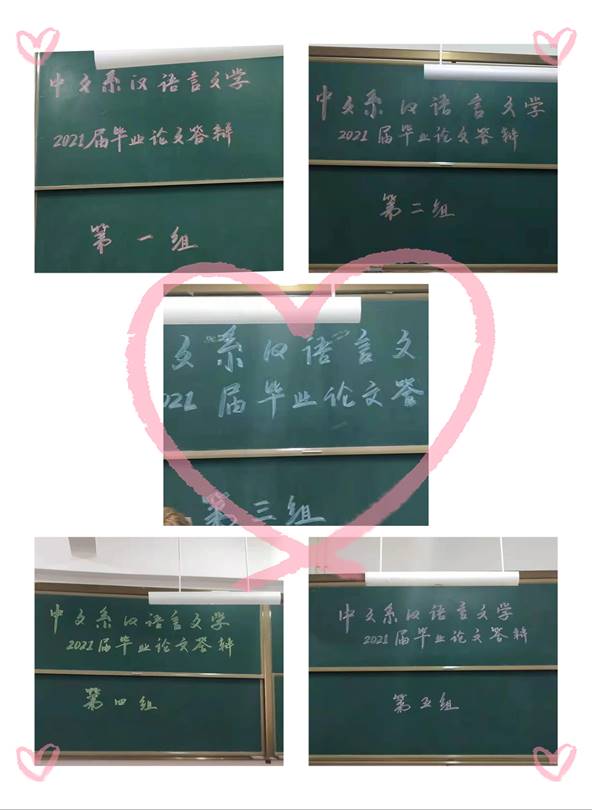 中文系汉语言文学
2021届毕业论文答辩
第一组
中文系汉语言文学
2021届毕业论文答辩
第二组
文系汉语言文
021届毕业论文答
第三组
中文系汉语言文学
2021届毕业论文答辩
第四组
中文系汉语言文学
2021届毕业论文答辩
第五组